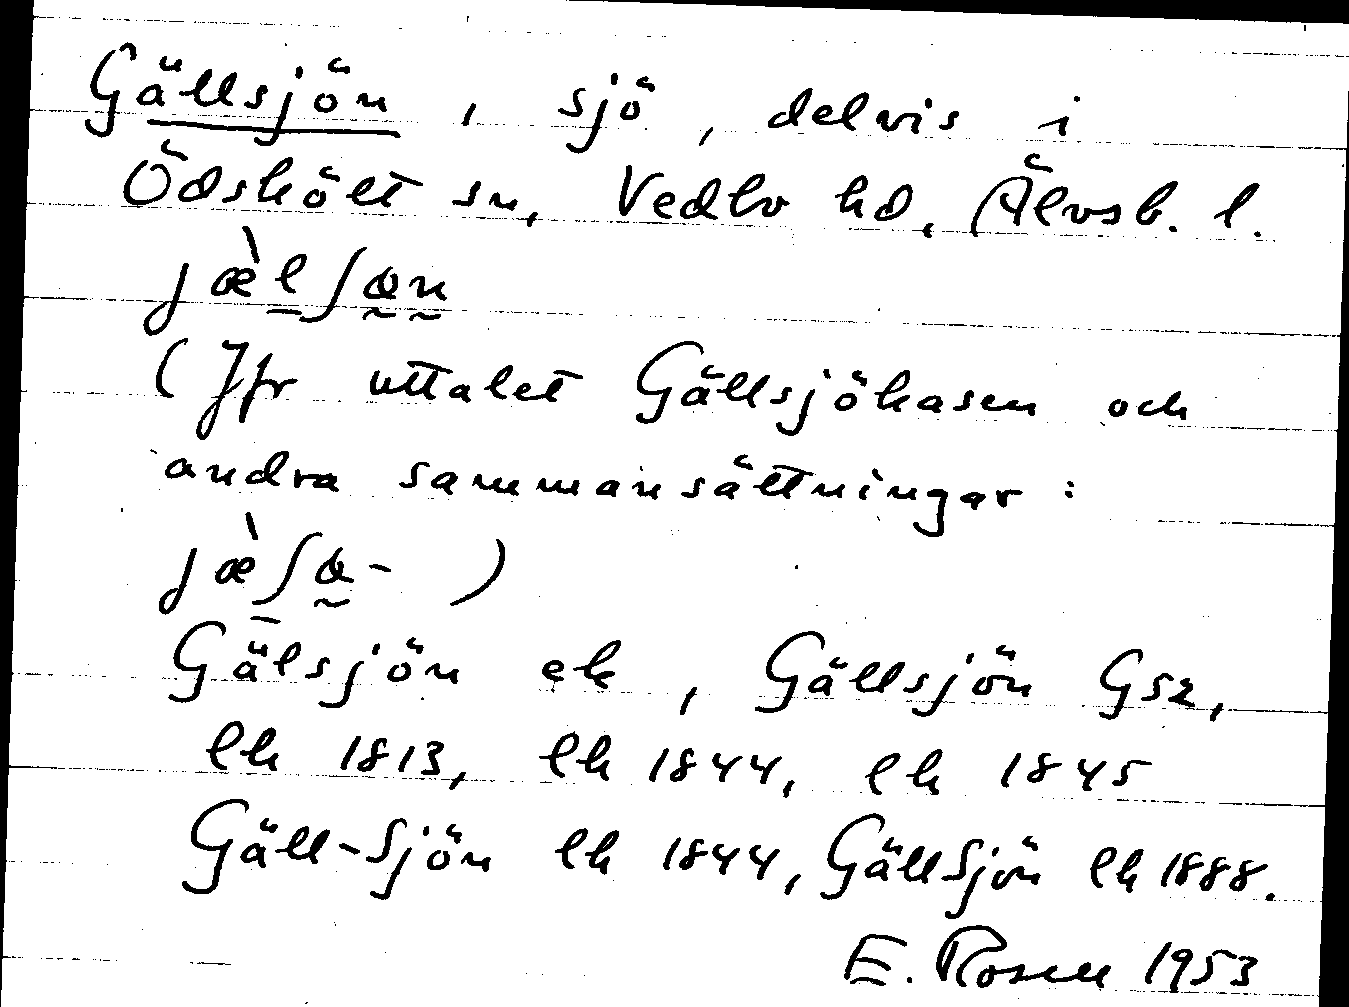 Gällsjön, sjö, delvis i
Ödskölt sn, Vedbo hd, Älvsb. l.
jæ̀l̠ʃɵ̰n̰
(Jfr uttalet Gällsjökasen och
andra sammansättningar:
jæ̀ʃ̠ɵ̰- )
Gälsjön ek, Gällsjön Gs2,
lk 1813, lk 1844, lk 1845
Gäll-Sjön lk 1844, GällSjön lk 1888.
E. Rosell 1953